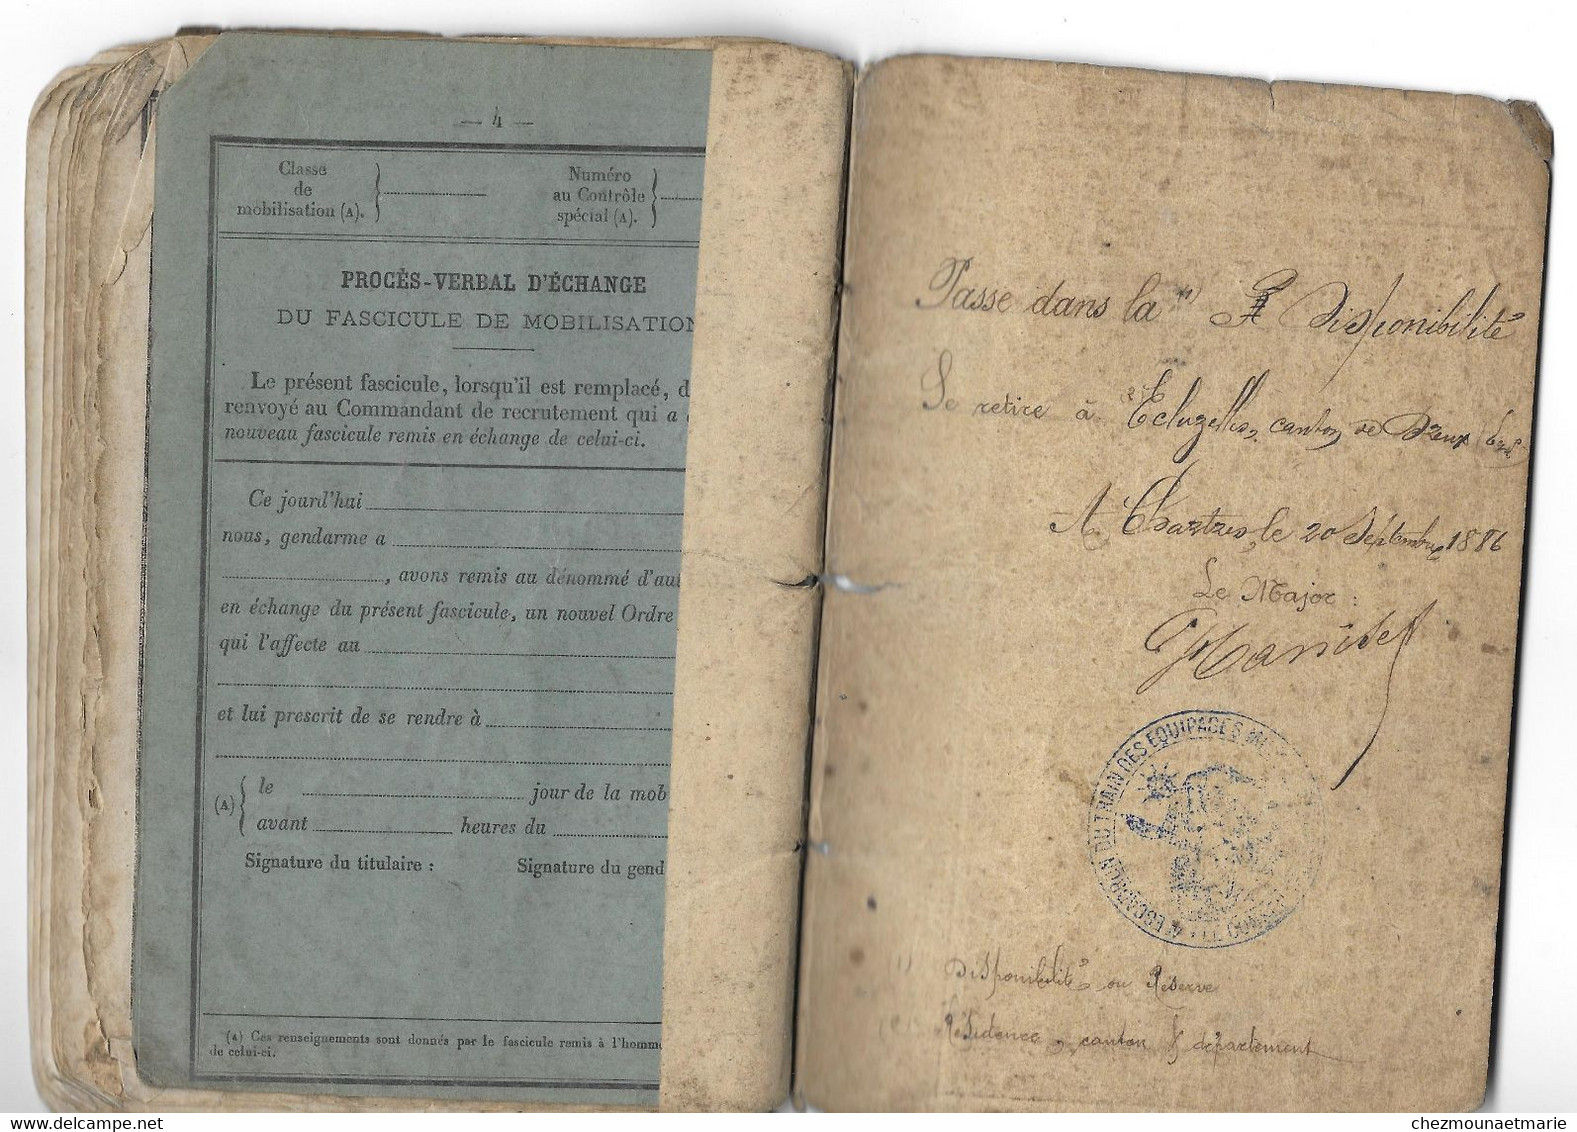 — 4 —
Classe
de
mobilisation (A).
Numéro
au Contrôle
spécial (A).
PROCÈS-VERBAL D'ÉCHANGE
DU FASCICULE DE MOBILISATION
Le présent fascicule, lorsqu'il est remplacé, d
renvoyé au Commandant de recrutement qui a
nouveau fascicule remis en échange de celui-ci.
Ce jourd'hui
nous, gendarme a
, avons remis au dénommé d'au
en échange du présent fascicule, un nouvel Ordre
qui l'affecte au
et lui prescrit de se rendre à
(A)
le jour de la mob
avant heures du
Signature du titulaire : Signature du gend
(A) Ces renseignements sont donnés par le fascicule remis à l'homme
de celui-ci.
Passe dans la (1) Disponibilité
Se retire à (2) Ecluzelles, canton de Dreux
A Chartres, le 20 Septembre 1886
Le Major :
ESCADRON DU TRAIN DES EQUIPAGES MI
Disponibilité ou Réserve
Résidence, canton & département
chezmounaetmarie